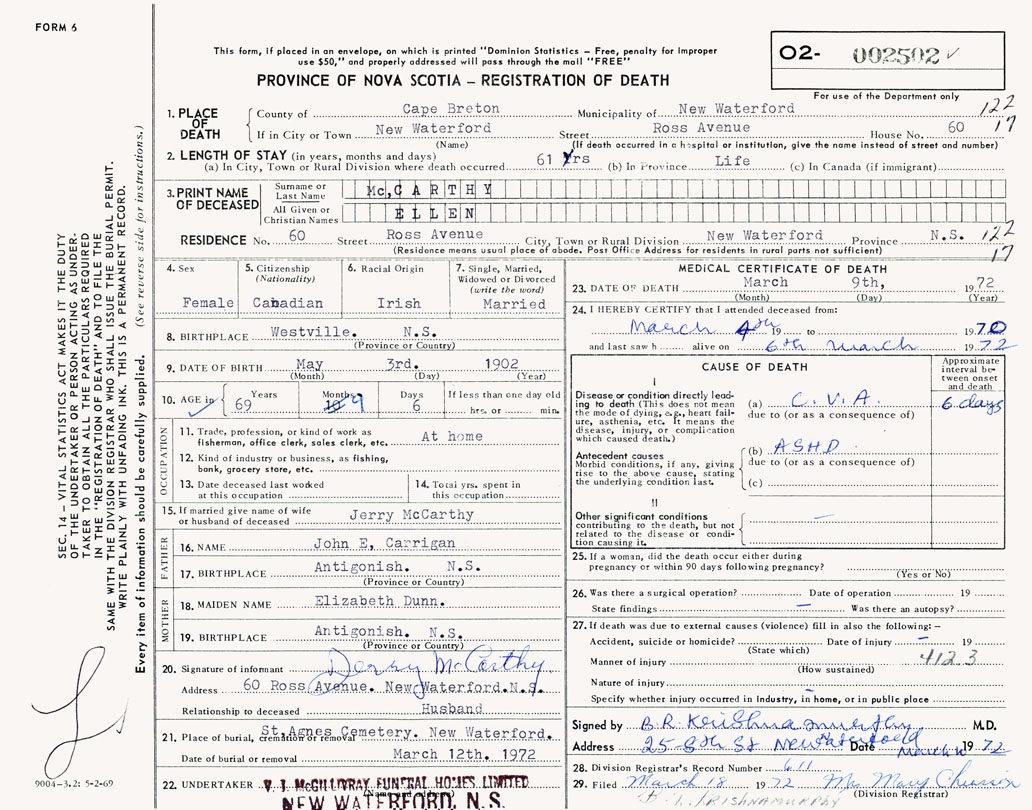 FORM 6
This form, if placed in an envelope, on which is printed "Dominion Statistics – Free, penalty for improper
use $50," and properly addressed will pass through the mail "FREE"
PROVINCE OF NOVA SCOTIA – REGISTRATION OF DEATH
O2- 002502 ✓
For use of the Department only
122
17
1. PLACE OF DEATH
County of Cape Breton Municipality of New Waterford
If in City or Town New Waterford Street Ross Avenue House No. 60
(Name) (If death occurred in a hospital or institution, give the name instead of street and number)
2. LENGTH OF STAY (in years, months and days)
(a) In City, Town or Rural Division where death occurred 61 Yrs (b) In Province Life (c) In Canada (if immigrant)
3. PRINT NAME OF DECEASED
Surname or Last Name Mc,CARTHY
All Given or Christian Names ELLEN
RESIDENCE No. 60 Street Ross Avenue City, Town or Rural Division New Waterford Province N.S. 122
(Residence means usual place of abode. Post Office Address for residents in rural parts not sufficient) 17
4. Sex
Female
5. Citizenship
(Nationality)
Canadian
6. Racial Origin
Irish
7. Single, Married,
Widowed or Divorced
(write the word)
Married
8. BIRTHPLACE Westville. N.S.
(Province or Country)
9. DATE OF BIRTH May 3rd. 1902
(Month) (Day) (Year)
10. AGE in Years Months Days If less than one day old
69 10 9 6 hrs. or min.
OCCUPATION
11. Trade, profession, or kind of work as
fisherman, office clerk, sales clerk, etc. At home
12. Kind of industry or business, as fishing,
bank, grocery store, etc.
13. Date deceased last worked
at this occupation
14. Total yrs. spent in
this occupation
15. If married give name of wife
or husband of deceased Jerry McCarthy
FATHER
16. NAME John E, Carrigan
17. BIRTHPLACE Antigonish. N.S.
(Province or Country)
MOTHER
18. MAIDEN NAME Elizabeth Dunn.
19. BIRTHPLACE Antigonish. N.S.
(Province or Country)
20. Signature of informant Jerry McCarthy
Address 60 Ross Avenue. New Waterford.N.S.
Relationship to deceased Husband
21. Place of burial, cremation or removal St.Agnes Cemetery. New Waterford.
Date of burial or removal March 12th. 1972
22. UNDERTAKER V. J. McGILLIVRAY FUNERAL HOMES LIMITED
(Name and address)
NEW WATERFORD, N.S.
MEDICAL CERTIFICATE OF DEATH
23. DATE OF DEATH March 9th, 1972
(Month) (Day) (Year)
24. I HEREBY CERTIFY that I attended deceased from:
March 4th 19 to 1970
and last saw h alive on 6th March 1972
CAUSE OF DEATH
Approximate
interval be-
tween onset
and death
I
Disease or condition directly lead-
ing to death (This does not mean
the mode of dying, e.g., heart fail-
ure, asthenia, etc. It means the
disease, injury, or complication
which caused death.)
(a) C.V.A. 6 days
due to (or as a consequence of)
Antecedent causes
Morbid conditions, if any, giving
rise to the above cause, stating
the underlying condition last.
(b) ASHD
due to (or as a consequence of)
(c)
II
Other significant conditions
contributing to the death, but not
related to the disease or condi-
tion causing it. –
25. If a woman, did the death occur either during
pregnancy or within 90 days following pregnancy?
(Yes or No)
26. Was there a surgical operation? Date of operation 19
State findings – Was there an autopsy?
27. If death was due to external causes (violence) fill in also the following: –
Accident, suicide or homicide? Date of injury – 19
(State which)
Manner of injury 412.3
(How sustained)
Nature of injury
Specify whether injury occurred in industry, in home, or in public place
Signed by B.R. Krishnamurthy M.D.
Address 25-8th St New Waterford Date March 1972
28. Division Registrar's Record Number 611
29. Filed March 18 1972 Mary
(Division Registrar)
B. R. KRISHNAMURPHY
SEC. 14 – VITAL STATISTICS ACT MAKES IT THE DUTY
OF THE UNDERTAKER OR PERSON ACTING AS UNDER-
TAKER TO OBTAIN ALL THE PARTICULARS REQUIRED
IN THE "REGISTRATION OF DEATH" AND TO FILE THE
SAME WITH THE DIVISION REGISTRAR WHO SHALL ISSUE THE BURIAL PERMIT.
WRITE PLAINLY WITH UNFADING INK. THIS IS A PERMANENT RECORD.
Every item of information should be carefully supplied. (See reverse side for instructions.)
9004-3.2: 5-2-69